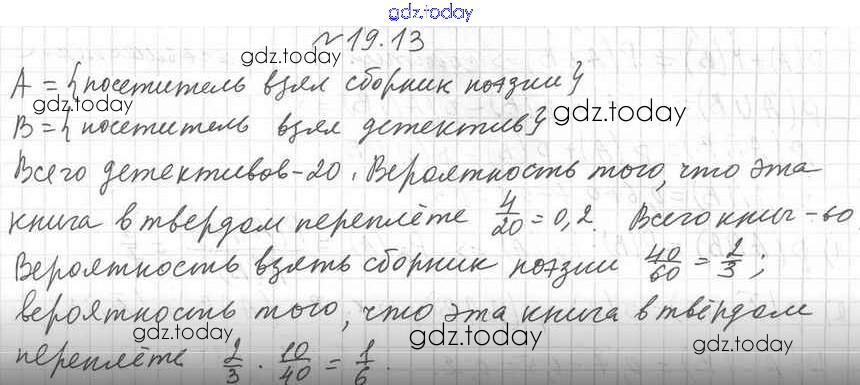 gdz.today
№ 19.13
gdz.today
A = {посетитель взял сборник поэзии}
gdz.today
B = {посетитель взял детектив}
gdz.today
Всего детективов - 20. Вероятность того, что эта
книга в твердом переплёте 4/20 = 0,2. Всего книг - 60.
Вероятность взять сборник поэзии 40/60 = 2/3;
вероятность того, что эта книга в твёрдом
gdz.today
gdz.today
переплёте 2/3 · 10/40 = 1/6.